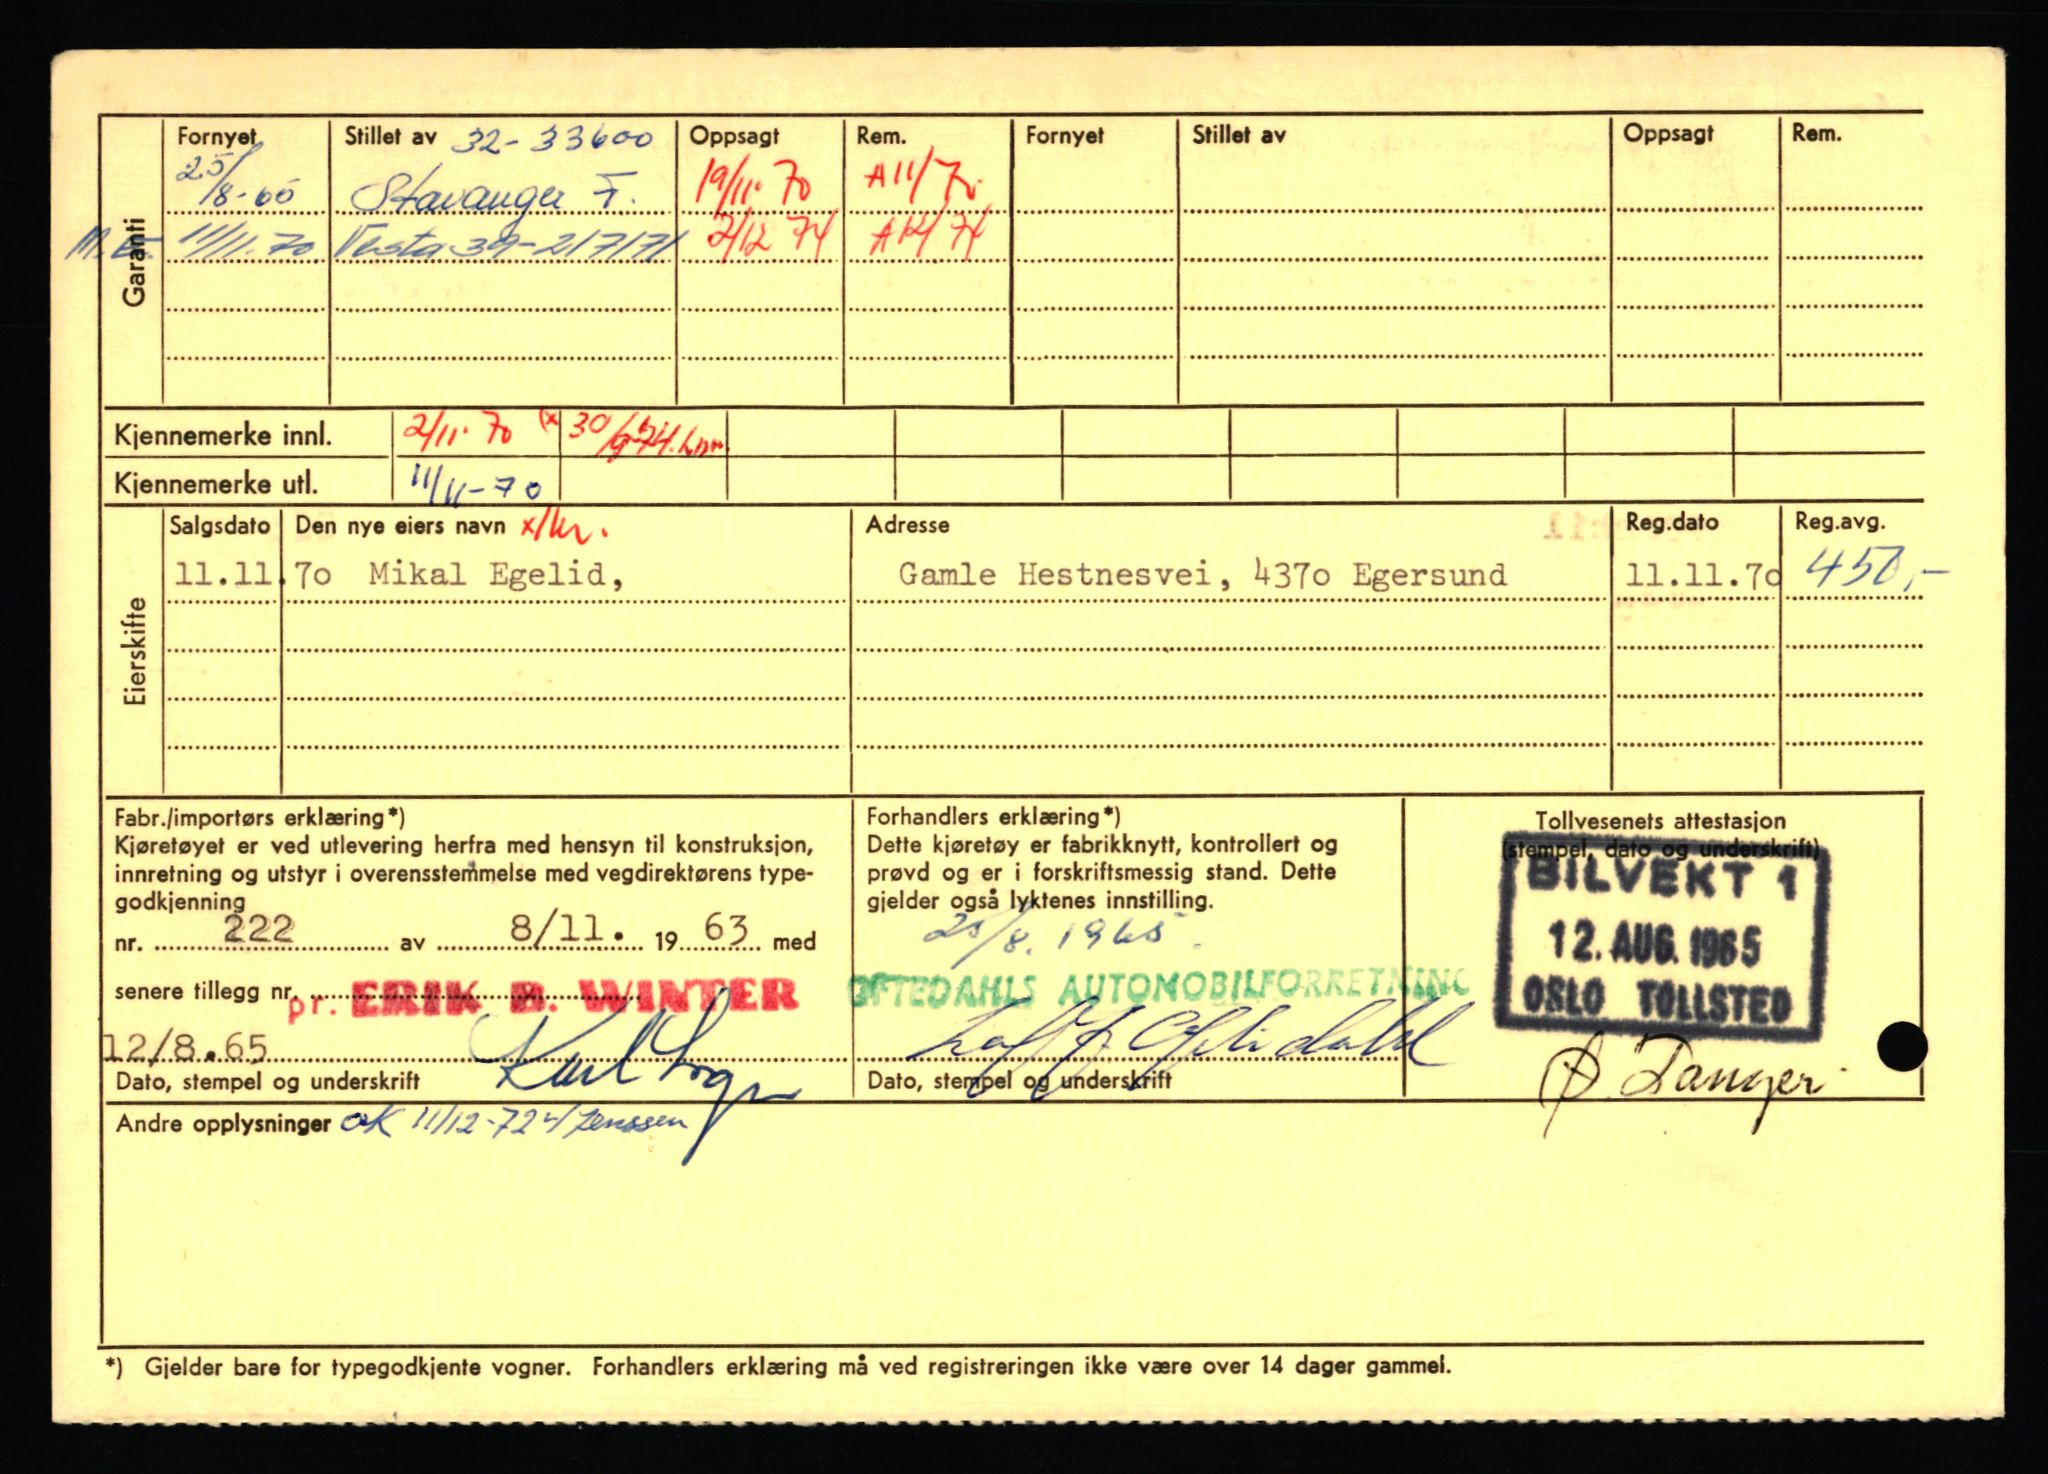 Garanti
Fornyet Stillet av 32-33600 Oppsagt Rem. Fornyet Stillet av Oppsagt Rem.
25/8-65 Stavanger F. 19/11-70 A11/70
11/11.70 Vesta 39-217171 2/12 74 A12/74
Kjennemerke innl. 2/11-70 (x 30/9-74.
Kjennemerke utl. 11/11-70
Eierskifte
Salgsdato Den nye eiers navn x/kr. Adresse Reg.dato Reg.avg.
11.11.70 Mikal Egelid, Gamle Hestnesvei, 4370 Egersund 11.11.70 450,-
Fabr./importørs erklæring*)
Kjøretøyet er ved utlevering herfra med hensyn til konstruksjon,
innretning og utstyr i overensstemmelse med vegdirektørens type-
godkjenning
nr. 222 av 8/11. 19 63 med
senere tillegg nr.
pr. ERIK B. WINTER
12/8.65 Karl
Dato, stempel og underskrift
Forhandlers erklæring*)
Dette kjøretøy er fabrikknytt, kontrollert og
prøvd og er i forskriftsmessig stand. Dette
gjelder også lyktenes innstilling.
25/8.1965.
OFTEDAHLS AUTOMOBILFORRETNING
Oftedahl
Dato, stempel og underskrift
Tollvesenets attestasjon
(stempel, dato og underskrift)
BILVEKT 1
12. AUG. 1965
OSLO TOLLSTED
Ø. Tanger
Andre opplysninger ok 11/12-72 Jenssen
*) Gjelder bare for typegodkjente vogner. Forhandlers erklæring må ved registreringen ikke være over 14 dager gammel.